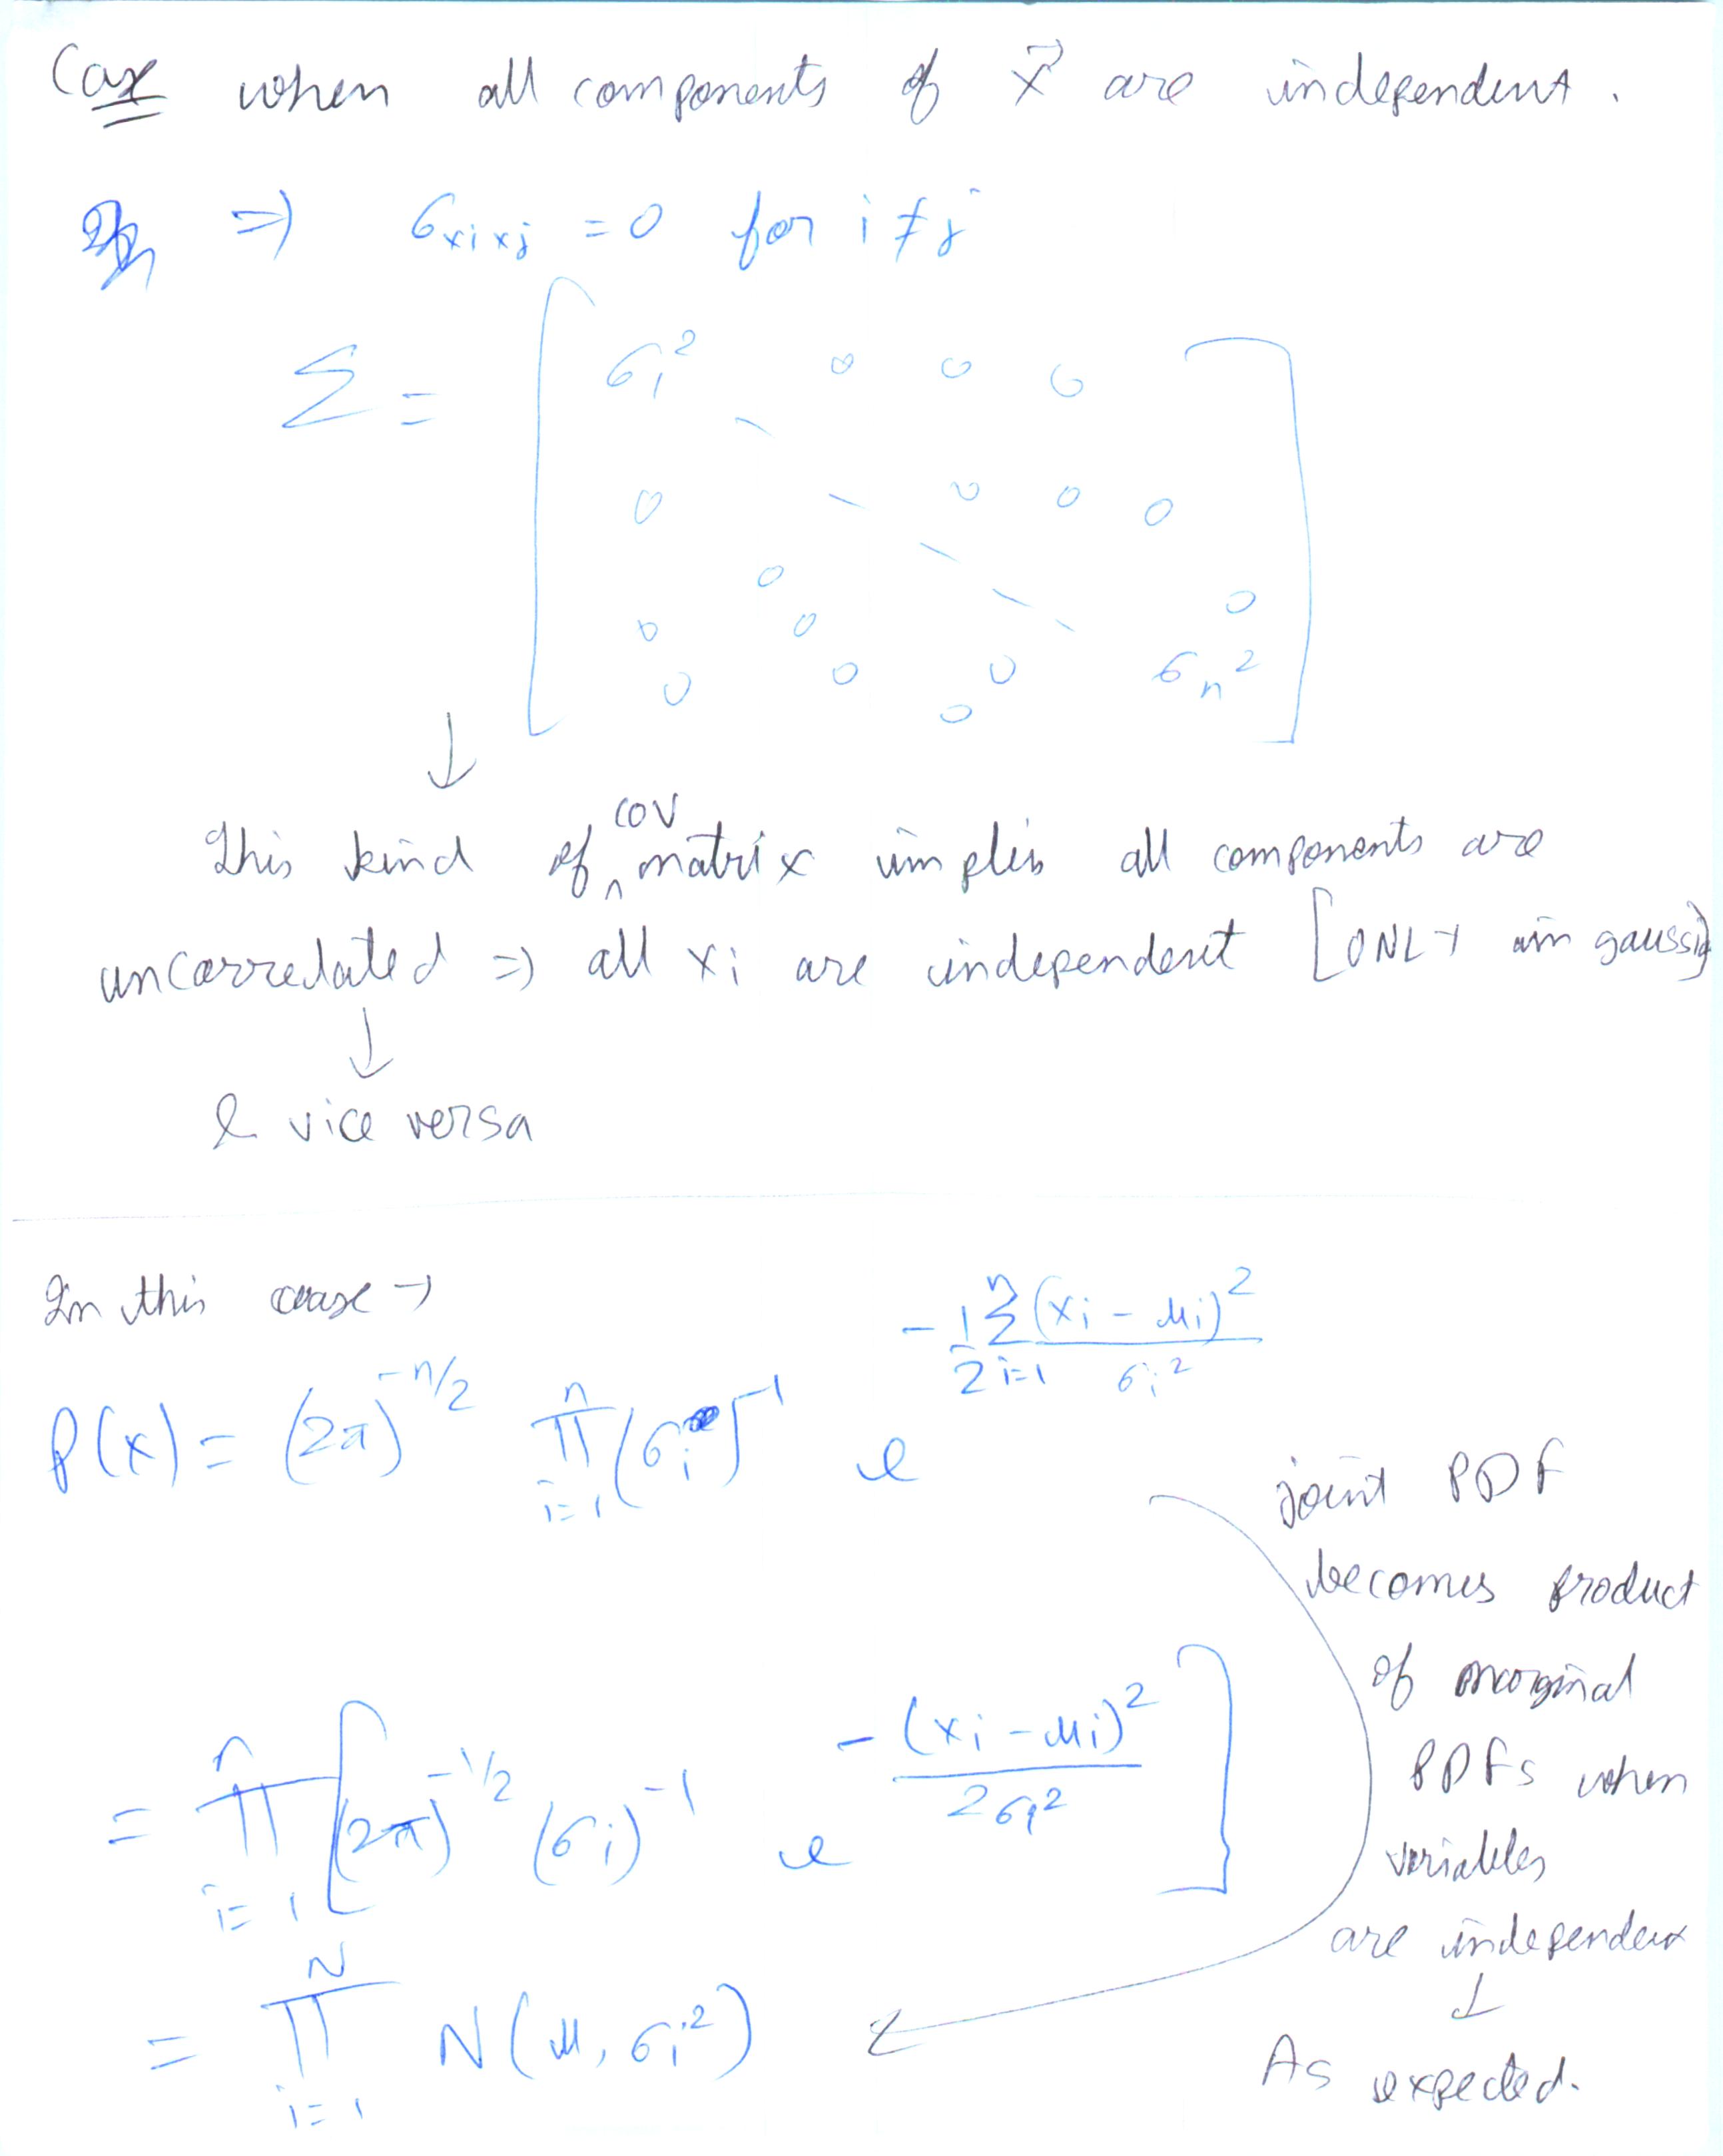 Case when all components of x⃗ are independent.
⇒ σxixj = 0 for i ≠ j
Σ = [ σ1² 0 0 0
0 0 0 0
0 0
0 0
0 0 0 0 σn² ]
↓
This kind of cov matrix implies all components are
uncorrelated ⇒ all xi are independent [ONLY in gaussia]
↓
& vice versa
In this case →
P(x) = (2π)^(-n/2) ∏_{i=1}^{n} (σi)^(-1) e^(-1/2 Σ_{i=1}^{n} (xi - μi)²/σi²)
= ∏_{i=1}^{n} [(2π)^(-1/2) (σi)^(-1) e^(-(xi - μi)²/2σi²)]
= ∏_{i=1}^{N} N(μ, σi²) ←
joint PDF
becomes product
of marginal
PDFs when
variables
are independent
↓
As expected.